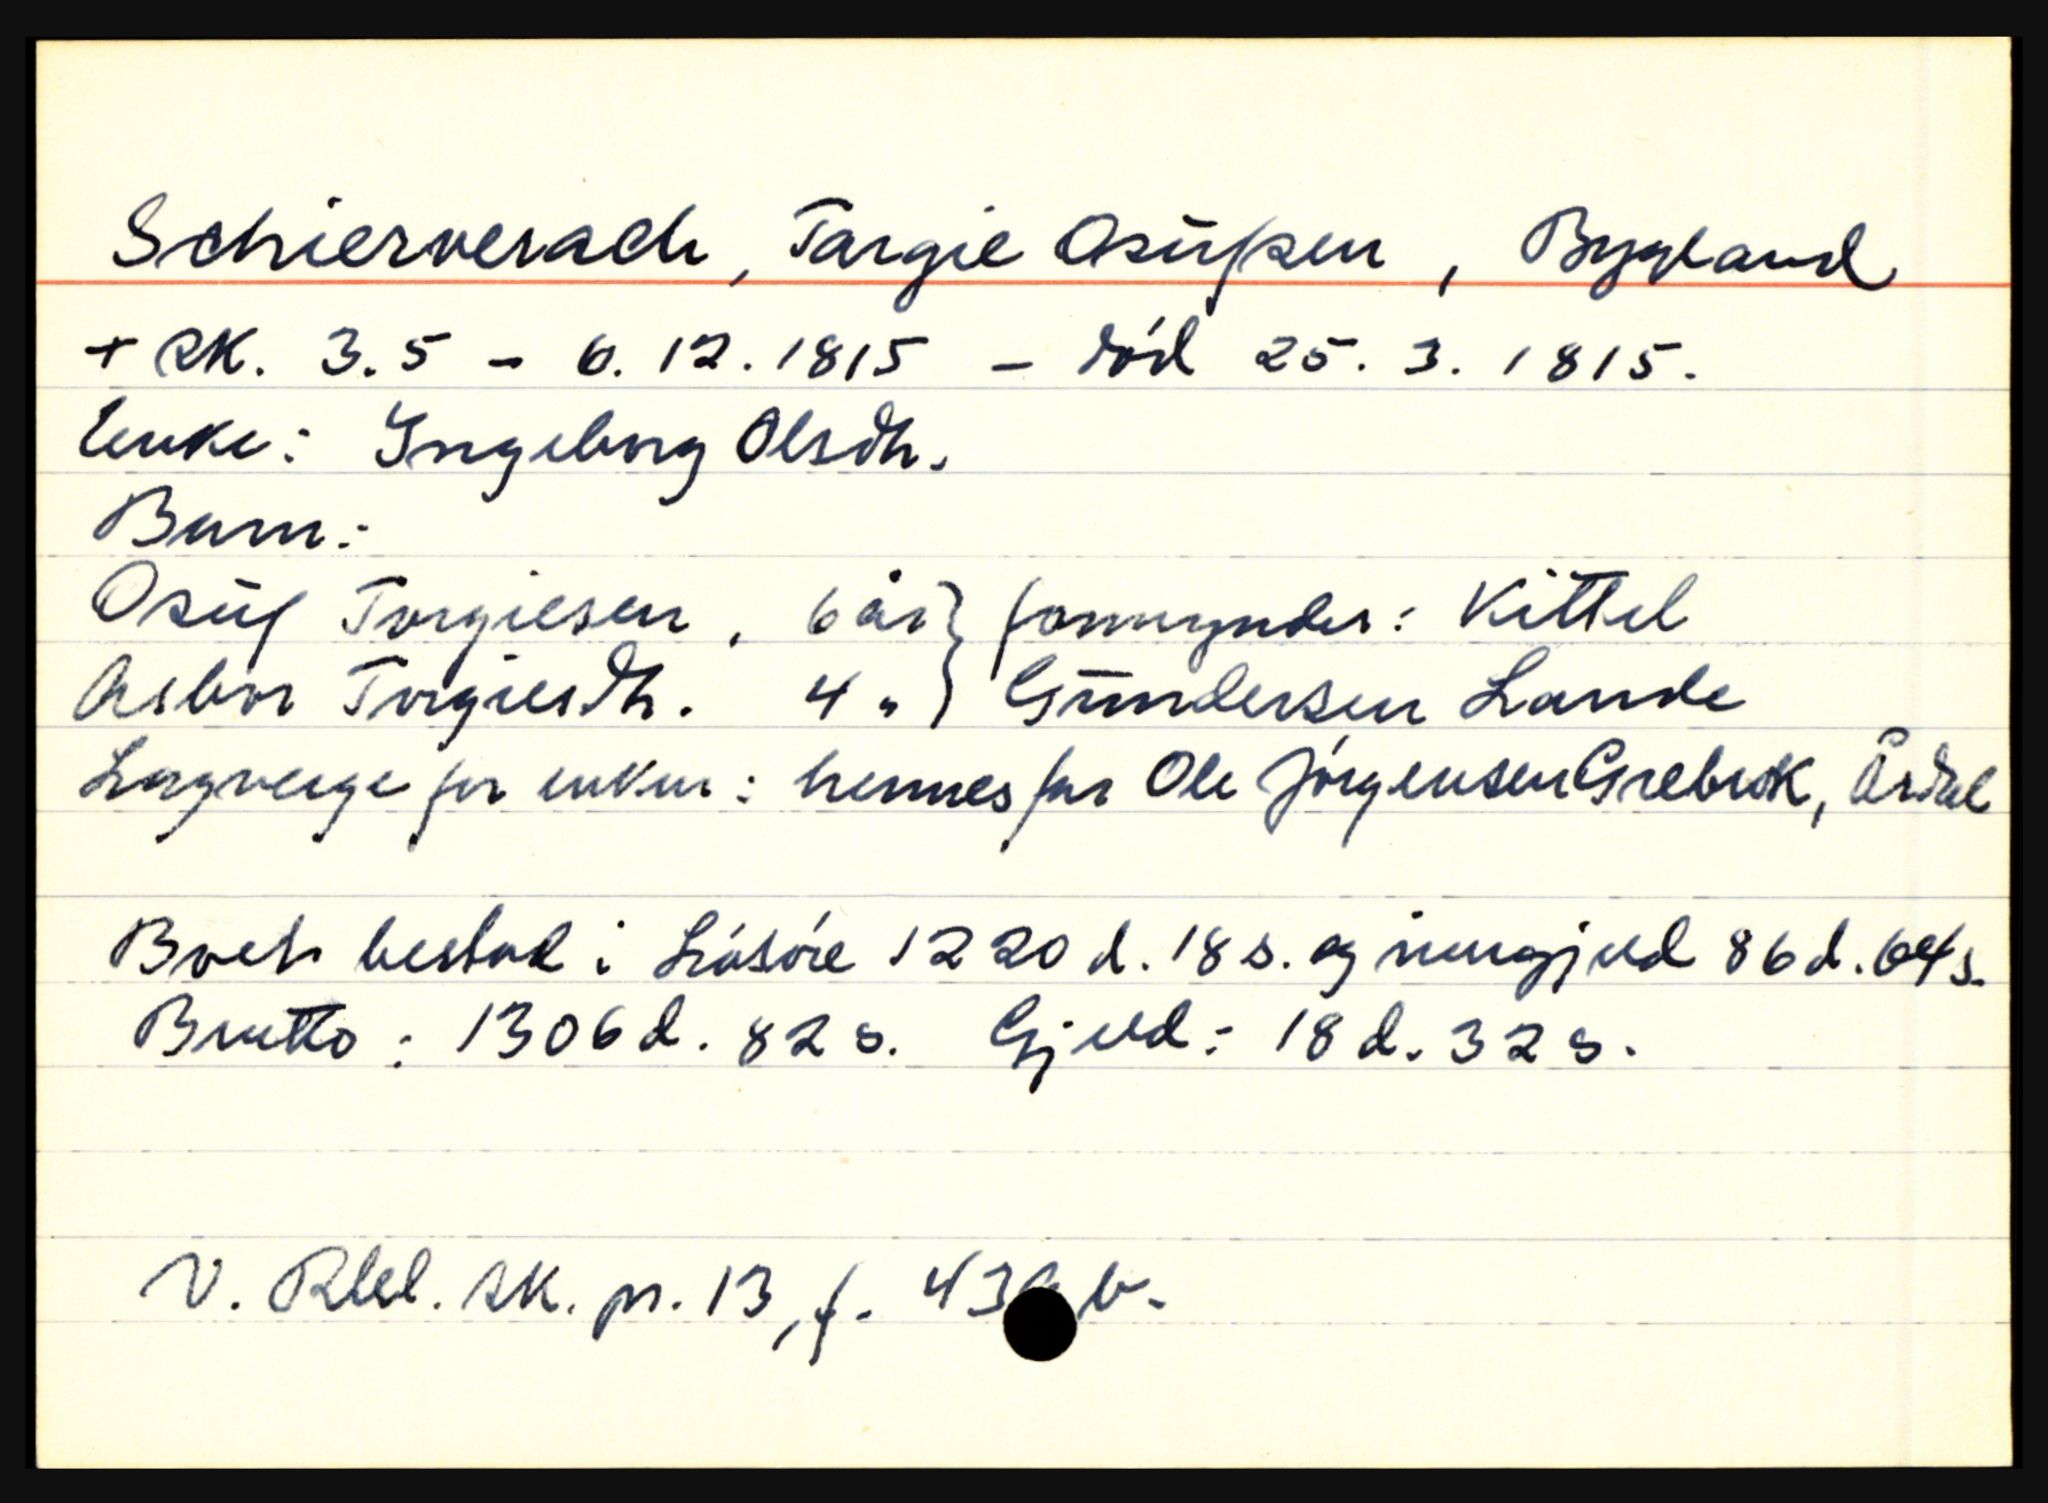 Schierverach, Targie Osufsen, Bygland
+ SK. 3.5 - 6.12.1815 - död 25.3.1815.
Enke: Yngeborg Olsdtr.
Barn:
Osuf Torgiesen, 6 år } formynder: Kittel
Asbor Torgiesdtr. 4 " } Gundersen Lande
Lagverge for enken: hennes far Ole Jörgensen Grebrok, Årdal
Boets bestod i Lösöre 1220 d. 18 s. og inngjeld 86 d. 64 s.
Brutto: 1306 d. 82 s. Gjeld: 18 d. 32 s.
V. Rbl. SK. pr. 13, f. 43 b.